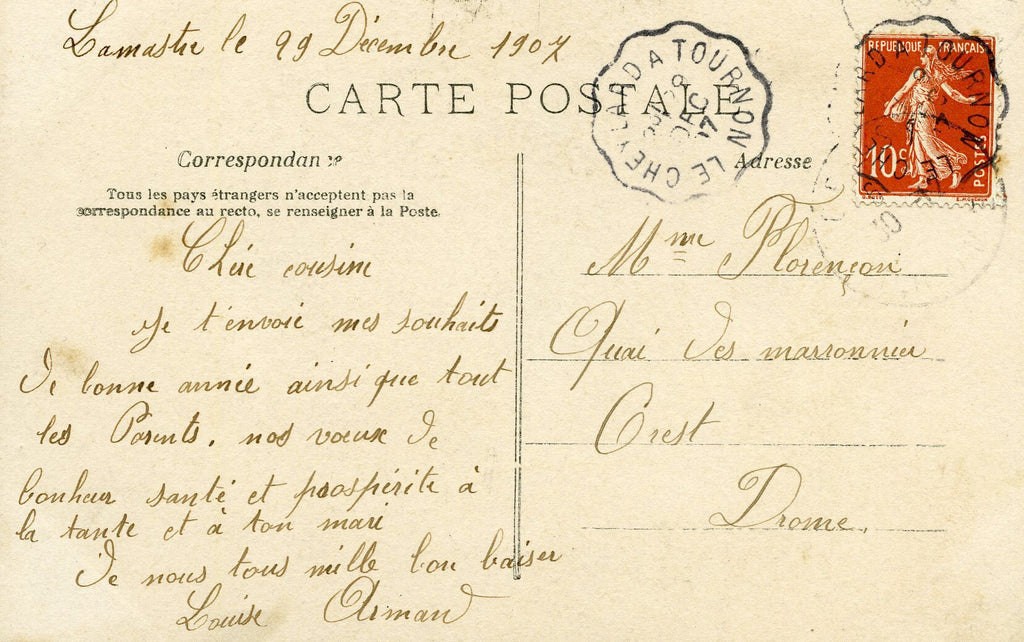 Lamastre le 29 Décembre 1907
CARTE POSTALE
Correspondance
Adresse
Tous les pays étrangers n'acceptent pas la
correspondance au recto, se renseigner à la Poste.
Chère cousine
Je t'envoie mes souhaits
de bonne année ainsi que tout
les Parents. nos voeux de
bonheur santé et prospérité à
la tante et à ton mari
De nous tous mille bon baiser
Louise Armand
Mme Florençon
Quai des marronnier
Crest
Drome.
LE CHEYLARD A TOURNON
DEC
07
REPUBLIQUE FRANÇAISE
10c
POSTES
LE CHEYLARD A TOURNON